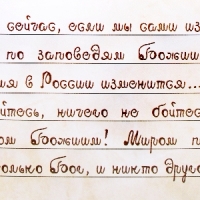 сейчас, если мы сами из
по заповедям Божьим
ия в России изменится...
йтесь, ничего не бойтесь
ом Божиим! Миром п
олько Бог, и никто друго